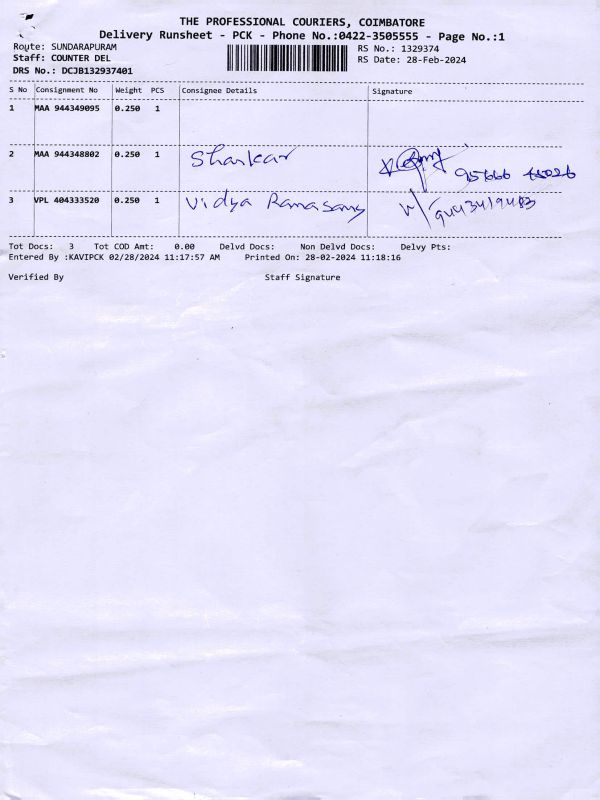 THE PROFESSIONAL COURIERS, COIMBATORE
Delivery Runsheet - PCK - Phone No.:0422-3505555 - Page No.:1
Route: SUNDARAPURAM RS No.: 1329374
Staff: COUNTER DEL RS Date: 28-Feb-2024
DRS No.: DCJB132937401
S No Consignment No Weight PCS Consignee Details Signature
1 MAA 944349095 0.250 1
2 MAA 944348802 0.250 1 Shankar
3 VPL 404333520 0.250 1 Vidya Ramasamy 9443419483
Tot Docs: 3 Tot COD Amt: 0.00 Delvd Docs: Non Delvd Docs: Delvy Pts:
Entered By :KAVIPCK 02/28/2024 11:17:57 AM Printed On: 28-02-2024 11:18:16
Verified By Staff Signature